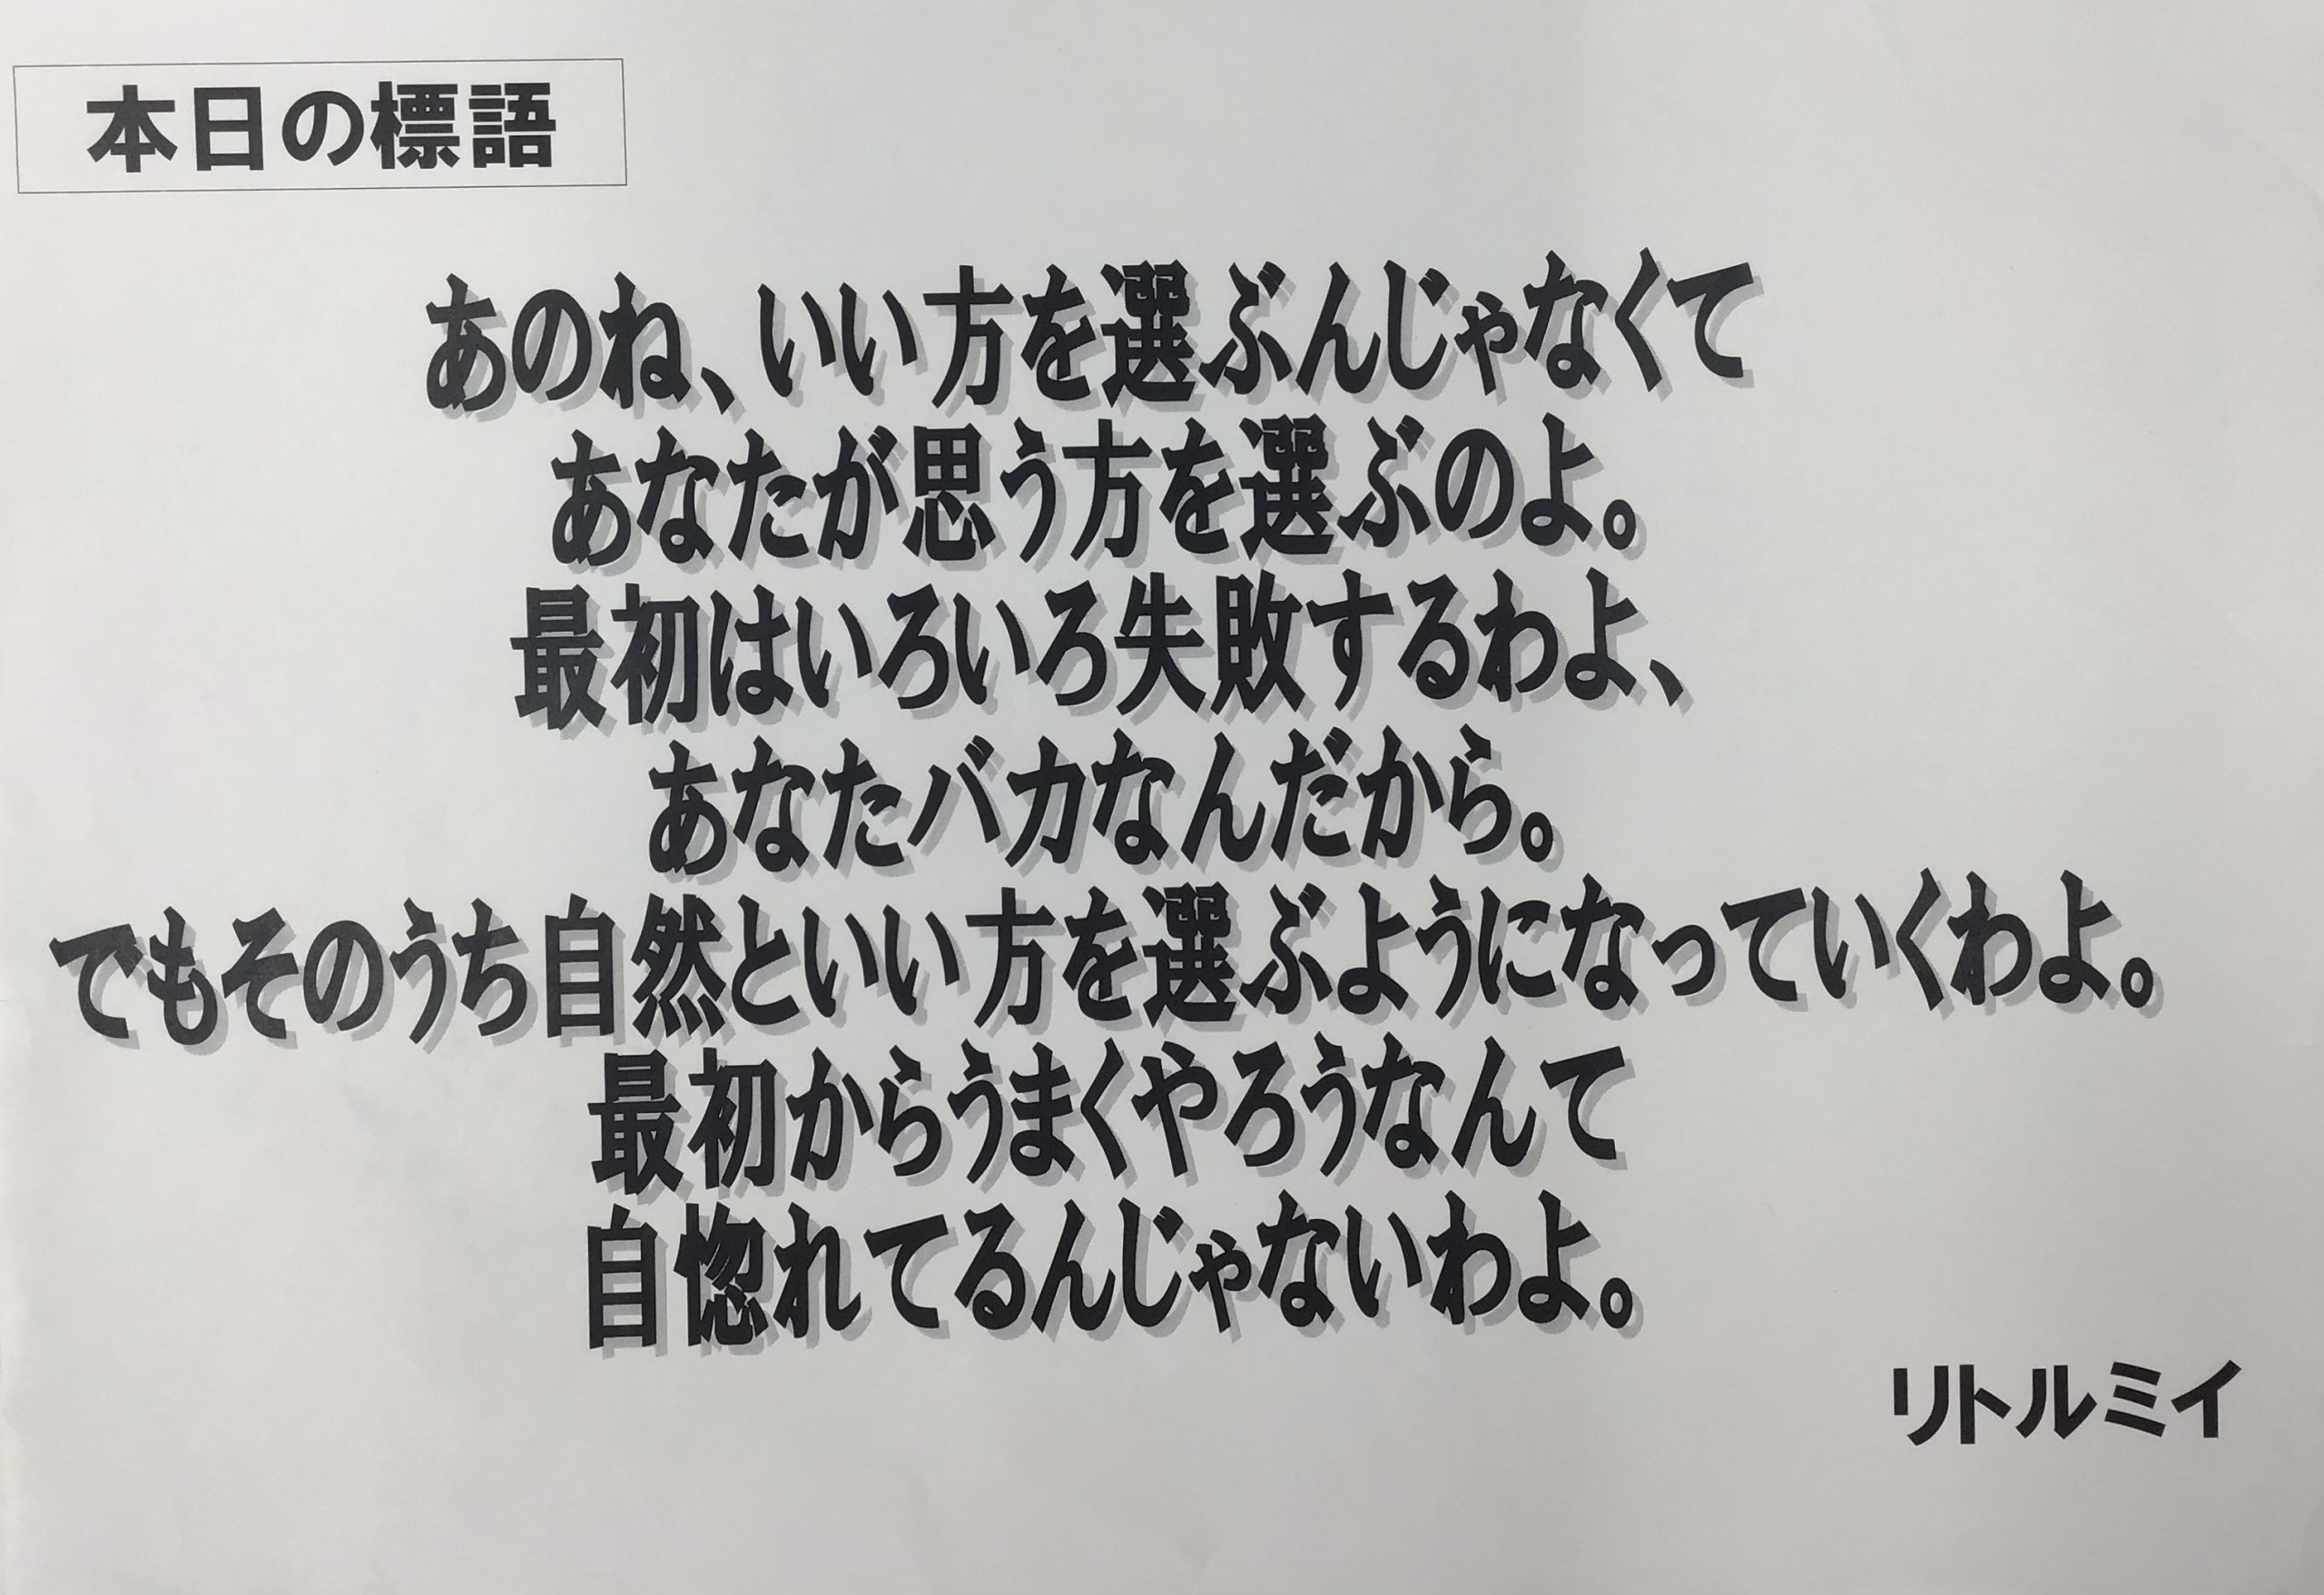 本日の標語
あのね、いい方を選ぶんじゃなくて
あなたが思う方を選ぶのよ。
最初はいろいろ失敗するわよ、
あなたバカなんだから。
でもそのうち自然といい方を選ぶようになっていくわよ。
最初からうまくやろうなんて
自惚れてるんじゃないわよ。
リトルミイ